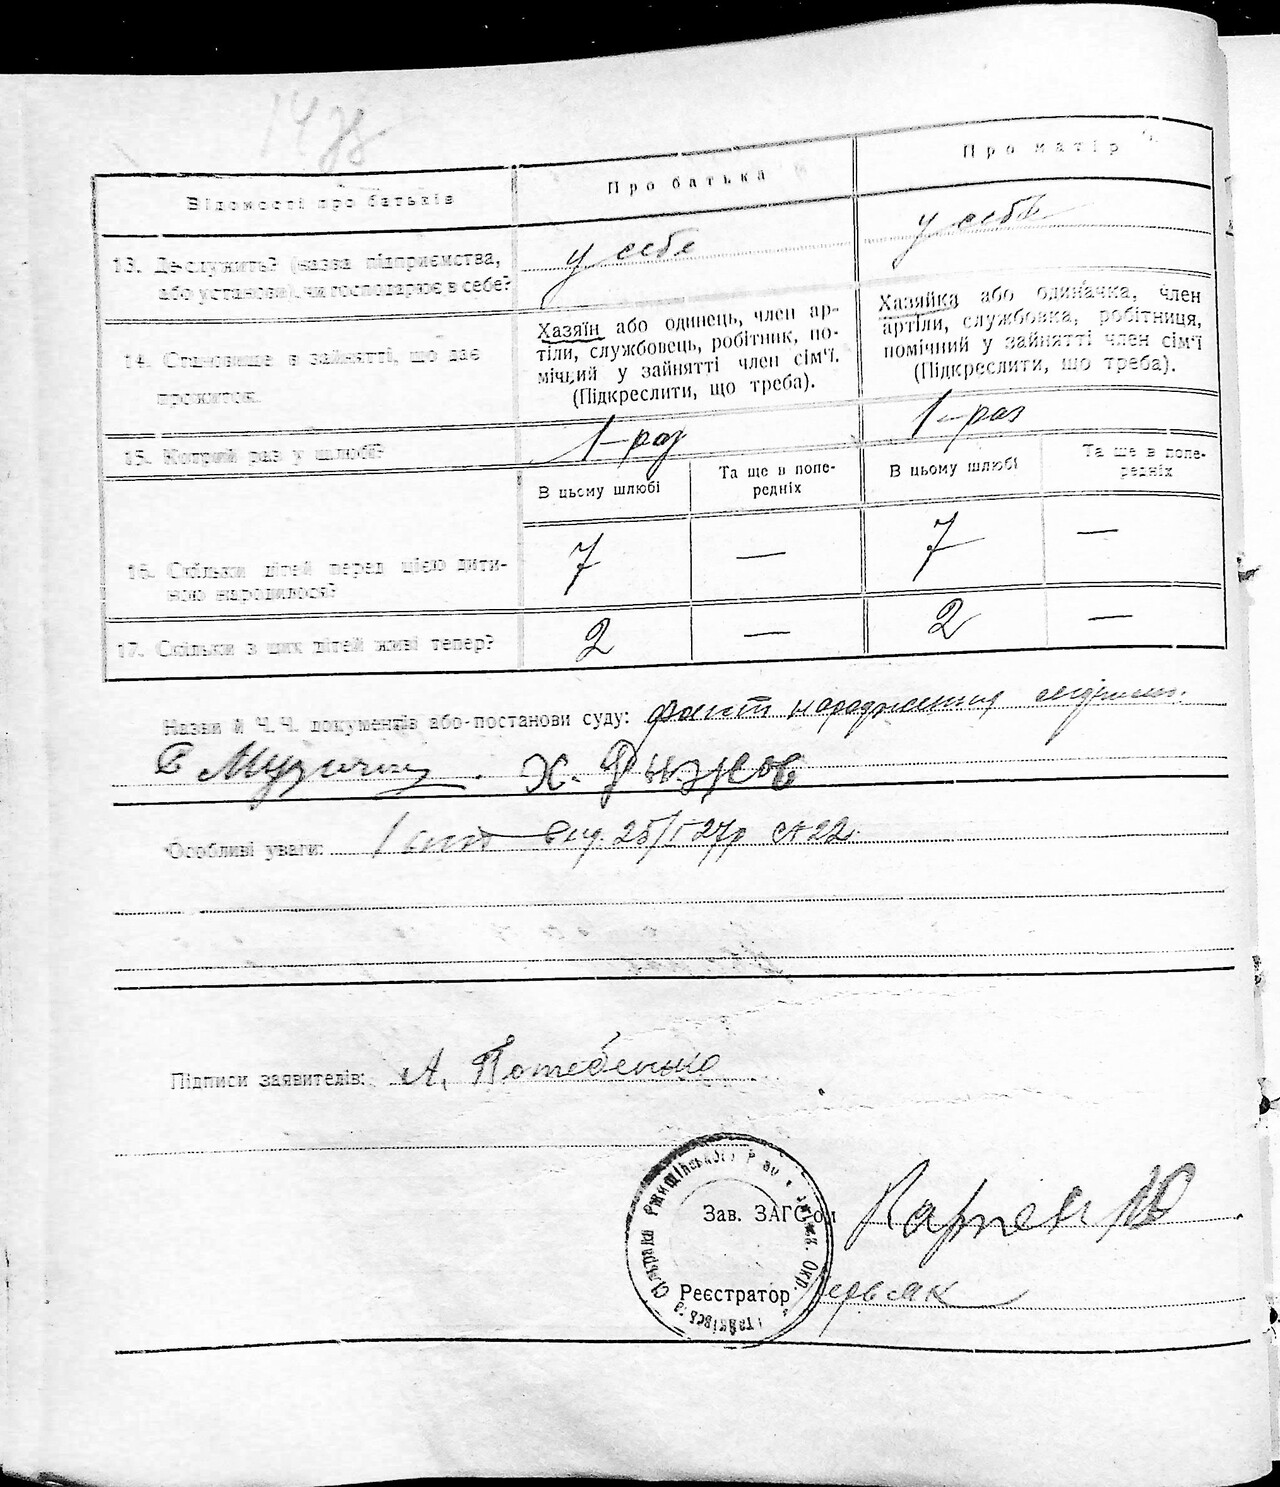 14 зв
Відомості про батьків
Про батька
Про матір
13. Де служить? (назва підприємства,
або установи), чи господарює в себе?
у себе
у себе
14. Становище в зайнятті, що дає
прожиток.
Хазяїн або одинець, член ар-
тіли, службовець, робітник, по-
мічний у зайнятті член сім'ї.
(Підкреслити, що треба).
Хазяйка або одиначка, член
артіли, службовка, робітниця,
помічний у зайнятті член сім'ї
(Підкреслити, що треба).
15. Котрий раз у шлюбі?
1-раз
1-раз
В цьому шлюбі
Та ще в попе-
редніх
В цьому шлюбі
Та ще в попе-
редніх
16. Скільки дітей перед цією дити-
ною народилося?
7 — 7 —
17. Скільки з цих дітей живі тепер?
2 — 2 —
Назви й Ч.Ч. документів або постанови суду: факт народження
Х. Рыжов
Особливі уваги: 25/I 27р
Підписи заявителів: А. Потебенко
Зав. ЗАГС'ом
Реєстратор
Сільрада Ржищівського Окр.